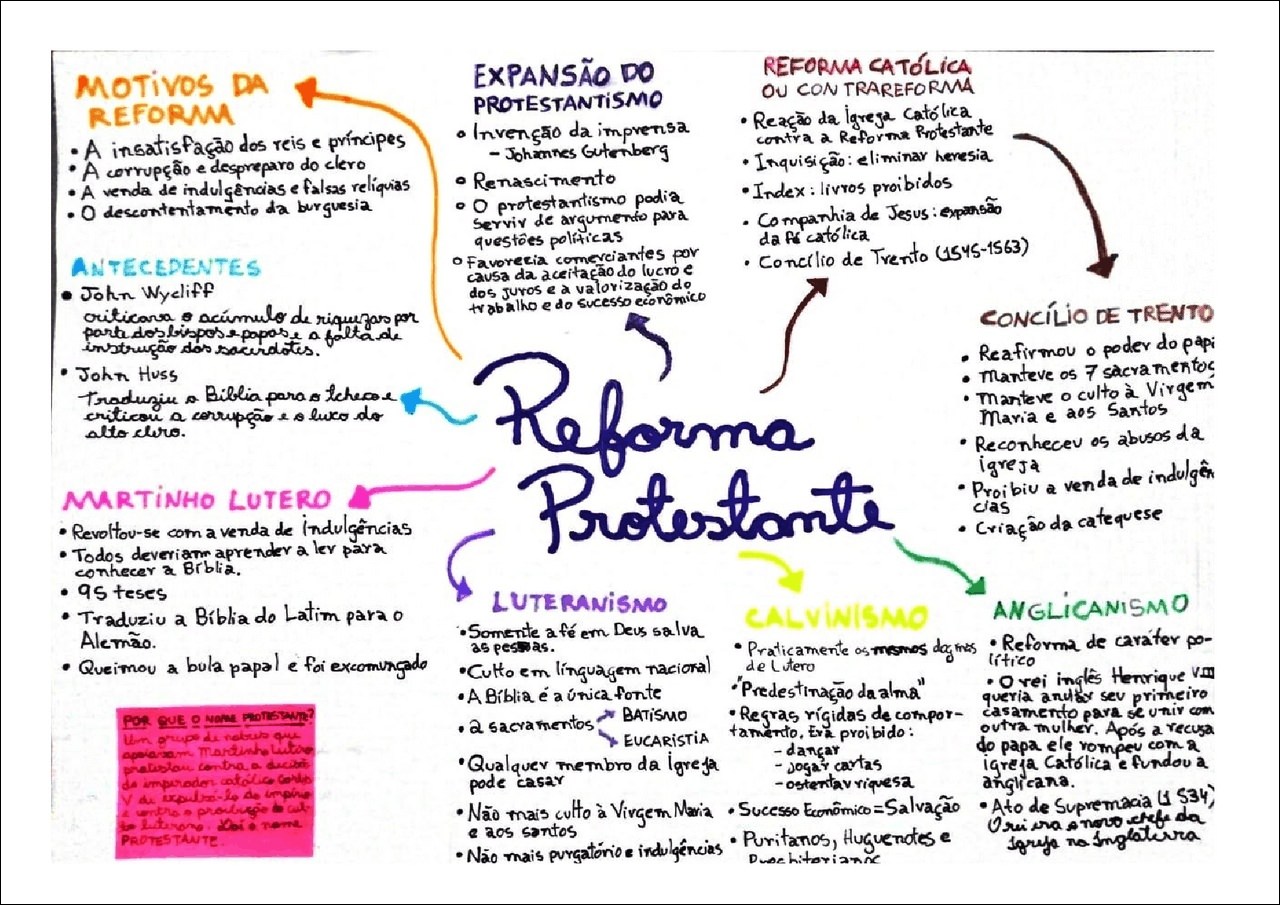 MOTIVOS DA
REFORMA
• A insatisfação dos reis e príncipes
• A corrupção e despreparo do clero
• A venda de indulgências e falsas relíquias
• O descontentamento da burguesia
ANTECEDENTES
• John Wycliff
criticava o acúmulo de riquezas por
parte dos bispos e papas e a falta de
instrução dos sacerdotes.
• John Huss
Traduziu a Bíblia para o tcheco e
criticou a corrupção e o luxo do
alto clero.
MARTINHO LUTERO
• Revoltou-se com a venda de Indulgências
• Todos deveriam aprender a ler para
conhecer a Bíblia.
• 95 teses
• Traduziu a Bíblia do Latim para o
Alemão.
• Queimou a bula papal e foi excomungado
POR QUE O NOME PROTESTANTE?
Um grupo de nobres que
apoiavam Martinho Lutero
protestou contra a decisão
do imperador católico Carlos
V de expulsá-lo do império
e contra a proibição do cul-
to luterano. Daí o nome
PROTESTANTE.
EXPANSÃO DO
PROTESTANTISMO
° Invenção da imprensa
- Johannes Gutenberg
° Renascimento
° O protestantismo podia
servir de argumento para
questões políticas
° Favorecia comerciantes por
causa da aceitação do lucro e
dos juros e a valorização do
trabalho e do sucesso econômico
REFORMA CATÓLICA
OU CONTRAREFORMA
• Reação da Igreja Católica
contra a Reforma Protestante
• Inquisição: eliminar heresia
• Index: livros proibidos
• Companhia de Jesus: expansão
da fé católica
• Concílio de Trento (1545-1563)
CONCÍLIO DE TRENTO
• Reafirmou o poder do pap
• Manteve os 7 sacramentos
• Manteve o culto à Virgem
Maria e aos Santos
• Reconheceu os abusos da
igreja
• Proibiu a venda de indulgên
cias
• Criação da catequese
Reforma
Protestante
LUTERANISMO
• Somente a fé em Deus salva
as pessoas.
• Culto em linguagem nacional
• A Bíblia é a única fonte
• 2 sacramentos
BATISMO
EUCARISTIA
• Qualquer membro da Igreja
pode casar
• Não mais culto à Virgem Maria
e aos santos
• Não mais purgatório e indulgências
CALVINISMO
• Praticamente os mesmos dogmas
de Lutero
• "Predestinação da alma"
• Regras rígidas de compor-
tamento. Era proibido:
- dançar
- jogar cartas
- ostentar riquesa
• Sucesso Econômico = Salvação
• Puritanos, Huguenotes e
Presbiterianos
ANGLICANISMO
• Reforma de caráter po-
lítico
• O rei inglês Henrique VIII
queria anular seu primeiro
casamento para se unir com
outra mulher. Após a recusa
do papa ele rompeu com a
igreja Católica e fundou a
anglicana.
• Ato de Supremacia (1534)
O rei era o novo chefe da
Igreja na Inglaterra